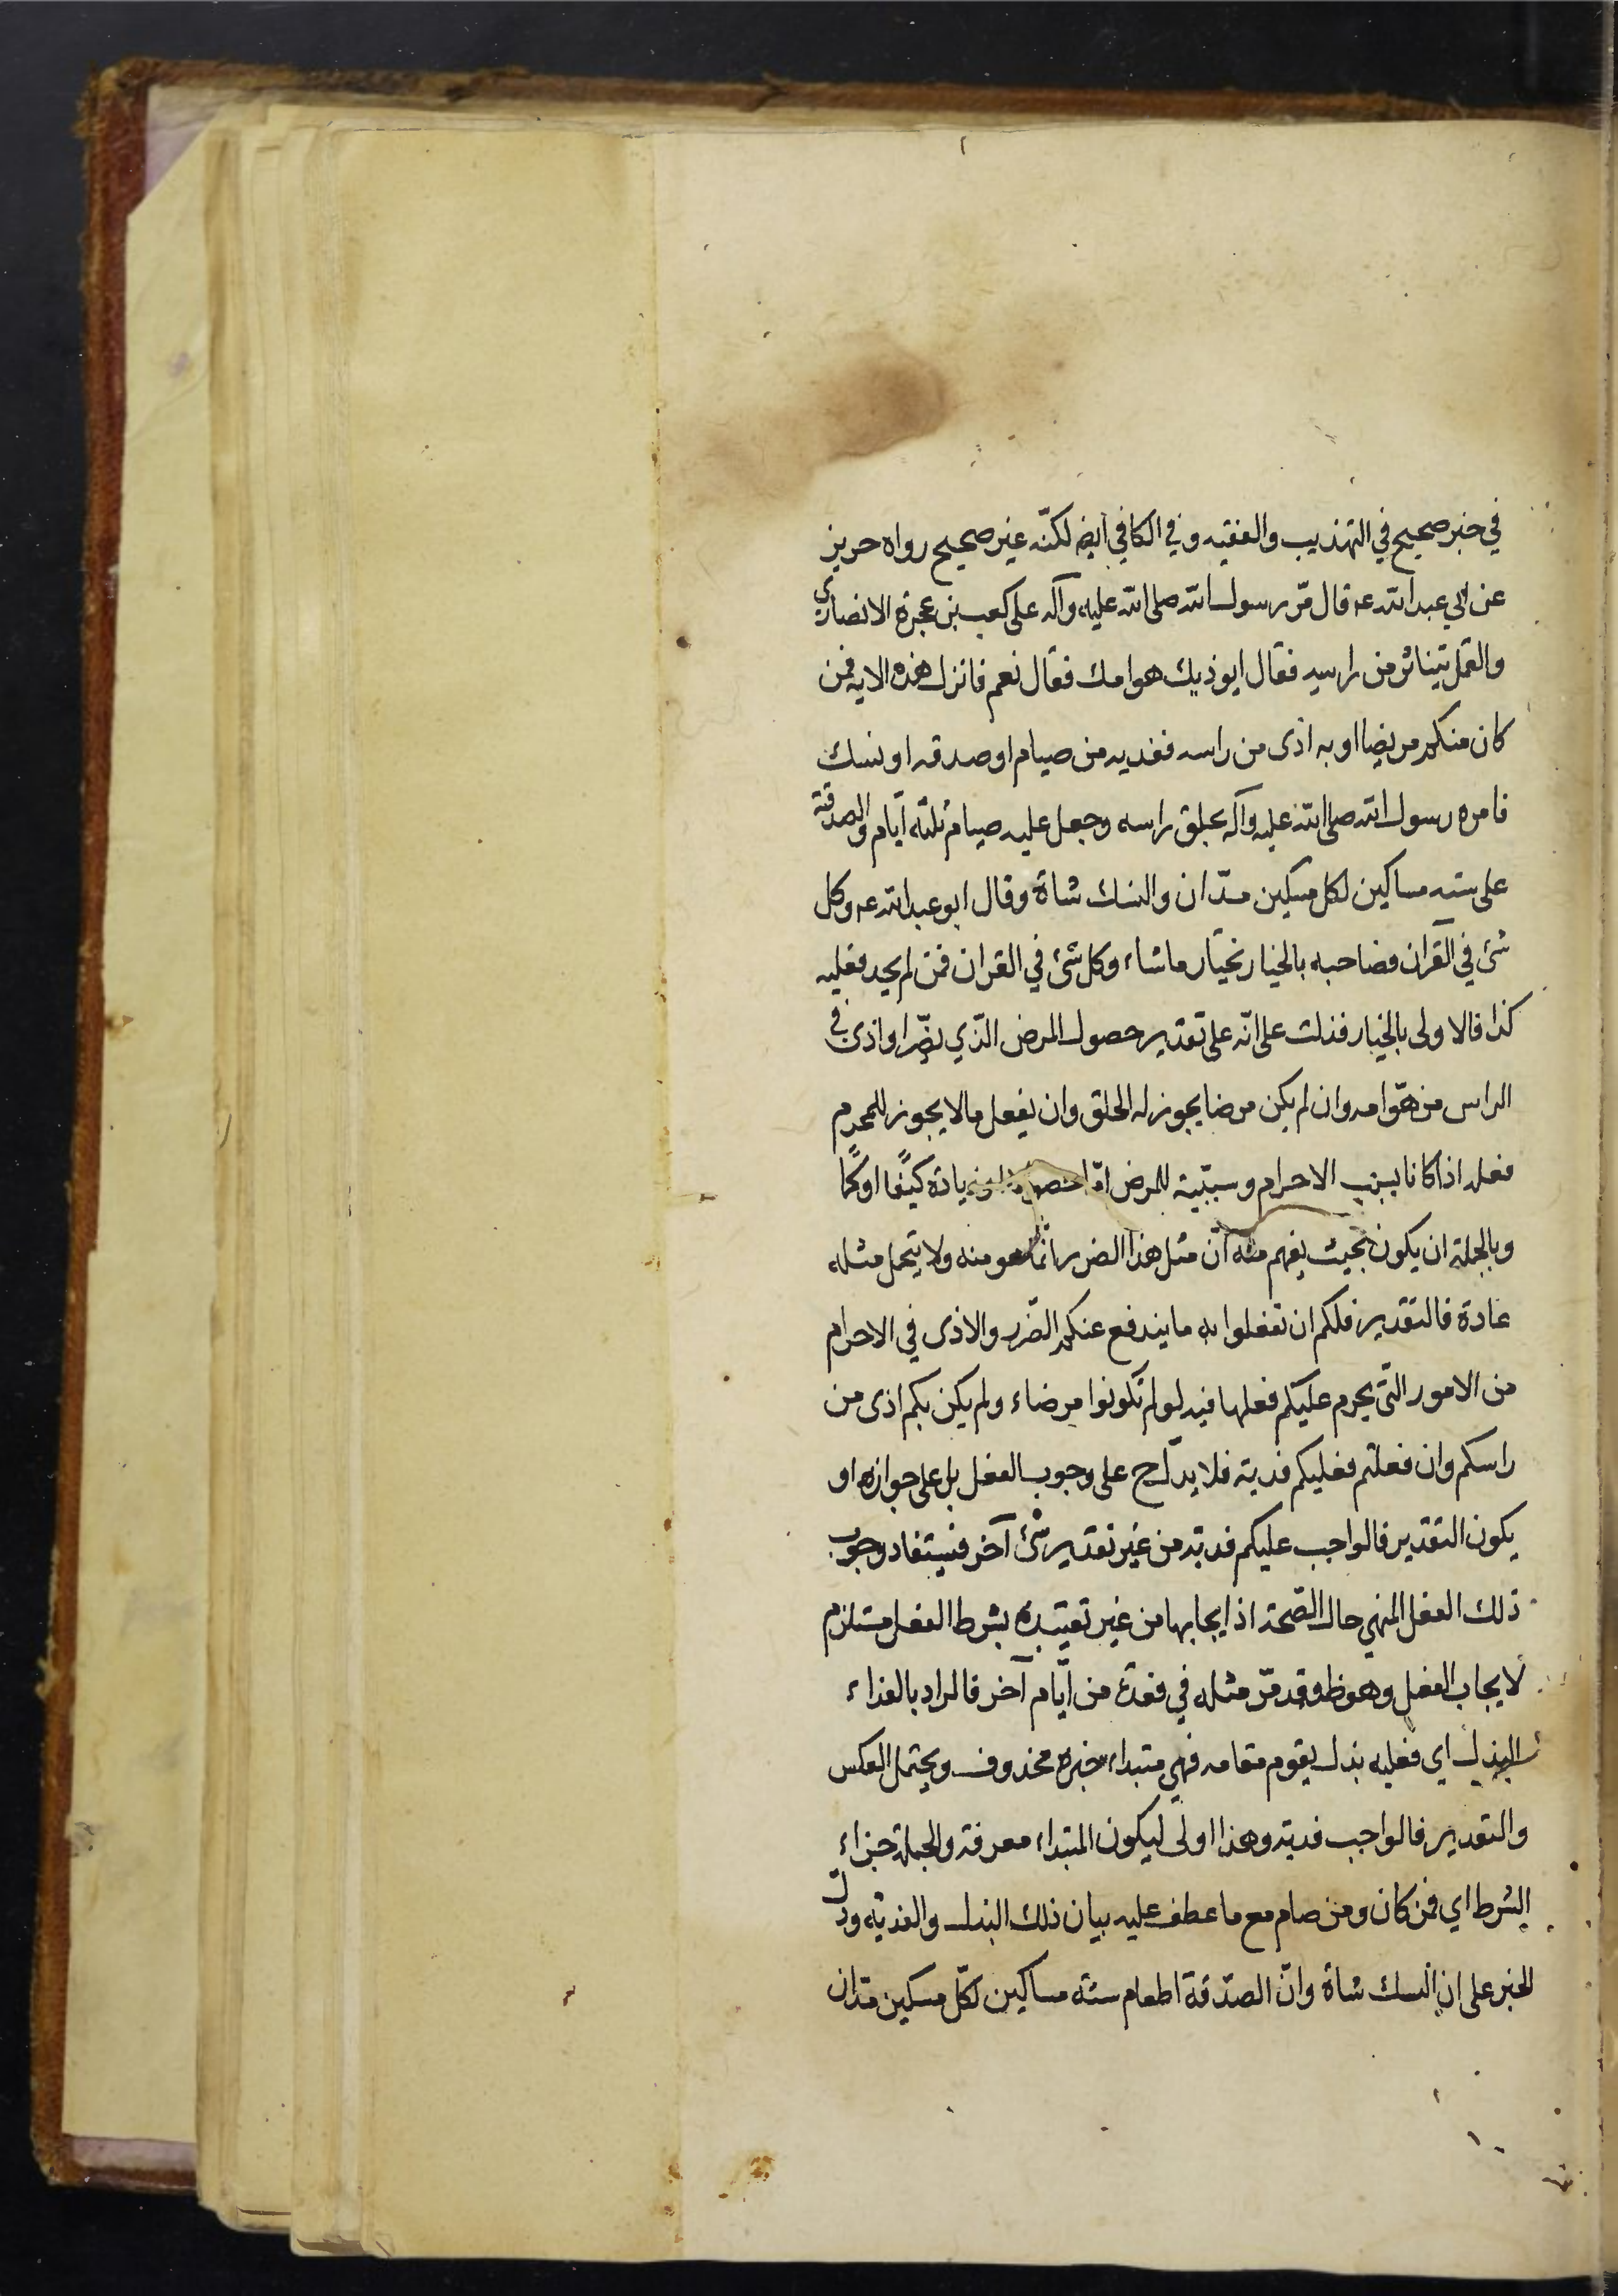 في خبر صحيح في التهذيب والفقيه وفي الكافي ايض لكنّه غير صحيح رواه حريز
عن ابي عبد الله عه قال مرّ رسول الله صلى الله عليه وآله على كعب بن عجرة الانصاري
والقمل يتناثر من راسه فقال ايوذيك هوامك فقال نعم فانزل هذه الايه فمن
كان منكم مريضا او به اذى من راسه ففديه من صيام او صدقه او نسك
فامره رسول الله صلى الله عليه وآله بحلق راسه وجعل عليه صيام ثلثه ايّام والصدقة
على سته مساكين لكل مسكين مدّان والنسك شاة وقال ابو عبد الله عه وكل
شئ في القرآن فصاحبه بالخيار يختار ما شاء وكل شئ في القران فمن لم يجد فعليه
كذا فالاولى بالخيار فدلت على انّه على تقدير حصول المرض الّذي يضّر او اذى في
الراس من هوّامه وان لم يكن مرضا يجوز له الحلق وان يفعل ما لا يجوز للمحرم
فعله اذا كانا بسبب الاحرام وسببّية للمرض امّا زيادة كيفًا او كمًا
وبالجملة ان يكون بحيث يفهم منه انّ مثل هذا الضرر انّما هو منه ولا يتحمل مثله
عادة فالتقدير فلكم ان تفعلوا به ما يندفع عنكم الضّرر والاذى في الاحرام
من الامور الّتي يحرم عليكم فعلها فيه لو لم تكونوا مرضاء ولم يكن بكم اذى من
راسكم وان فعلتم فعليكم فدية فلا يدلّ ح على وجوب الفعل بل على جوازه او
يكون التقدير فالواجب عليكم فدية من غير تقدير شئ آخر فيستفاد وجوب
ذلك الفعل المنهي حال الصّحّة اذ ايجابها من غير تقييده بشرط الفعل مستلزم
لايجاب الفعل وهو ظ وقد مرّ مثله في فعدة من ايّام آخر فالمراد بالفداء
البدل اي فعليه بدل يقوم مقامه فهي مبتداء خبره محذوف ويحتمل العكس
والتقدير فالواجب فدية وهذا اولى ليكون المبتداء معرفة والجملة جزاء
الشرط اي فمن كان ومن صيام مع ما عطف عليه بيان ذلك البدل والفدية ودلّ
الخبر على ان النسك شاة وانّ الصدّقة اطعام ستة مساكين لكلّ مسكين مدّان